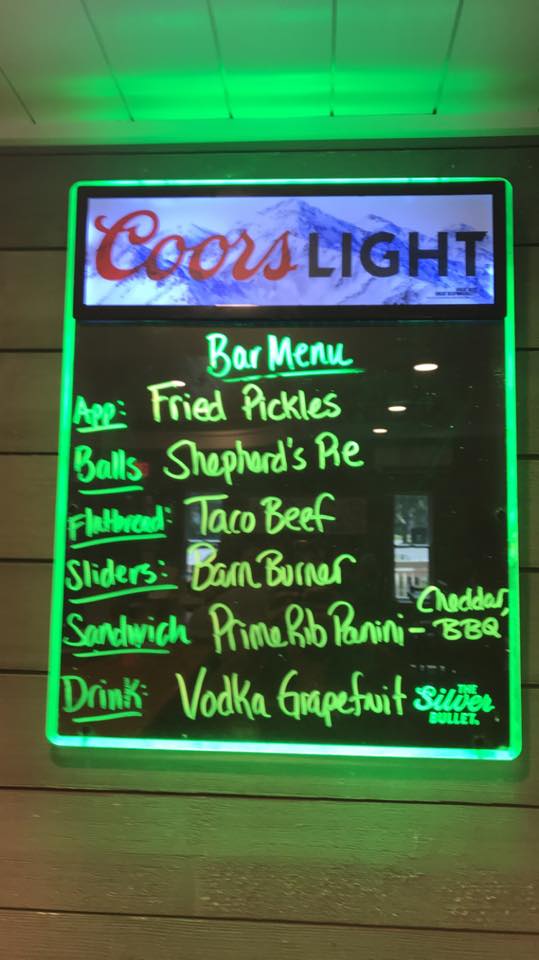 Coors LIGHT
Bar Menu
App: Fried Pickles
Balls Shepherd's Pie
Flatbread: Taco Beef
Sliders: Barn Burner
Sandwich Prime Rib Panini - Cheddar, BBQ
Drink: Vodka Grapefruit
THE
Silver
BULLET.